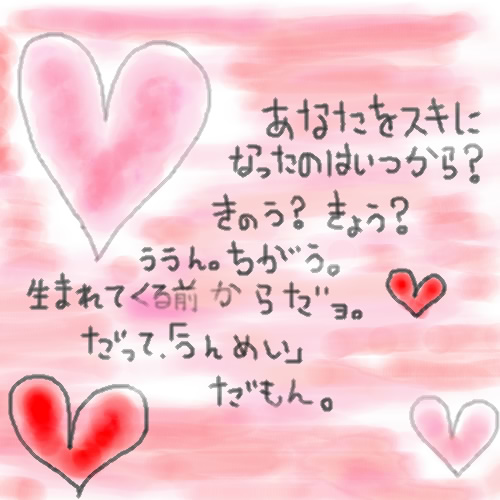 あなたをスキに
なったのはいつから?
きのう? きょう?
ううん。ちがう。
生まれてくる前からだョ。
だって、「うんめい」
だもん。